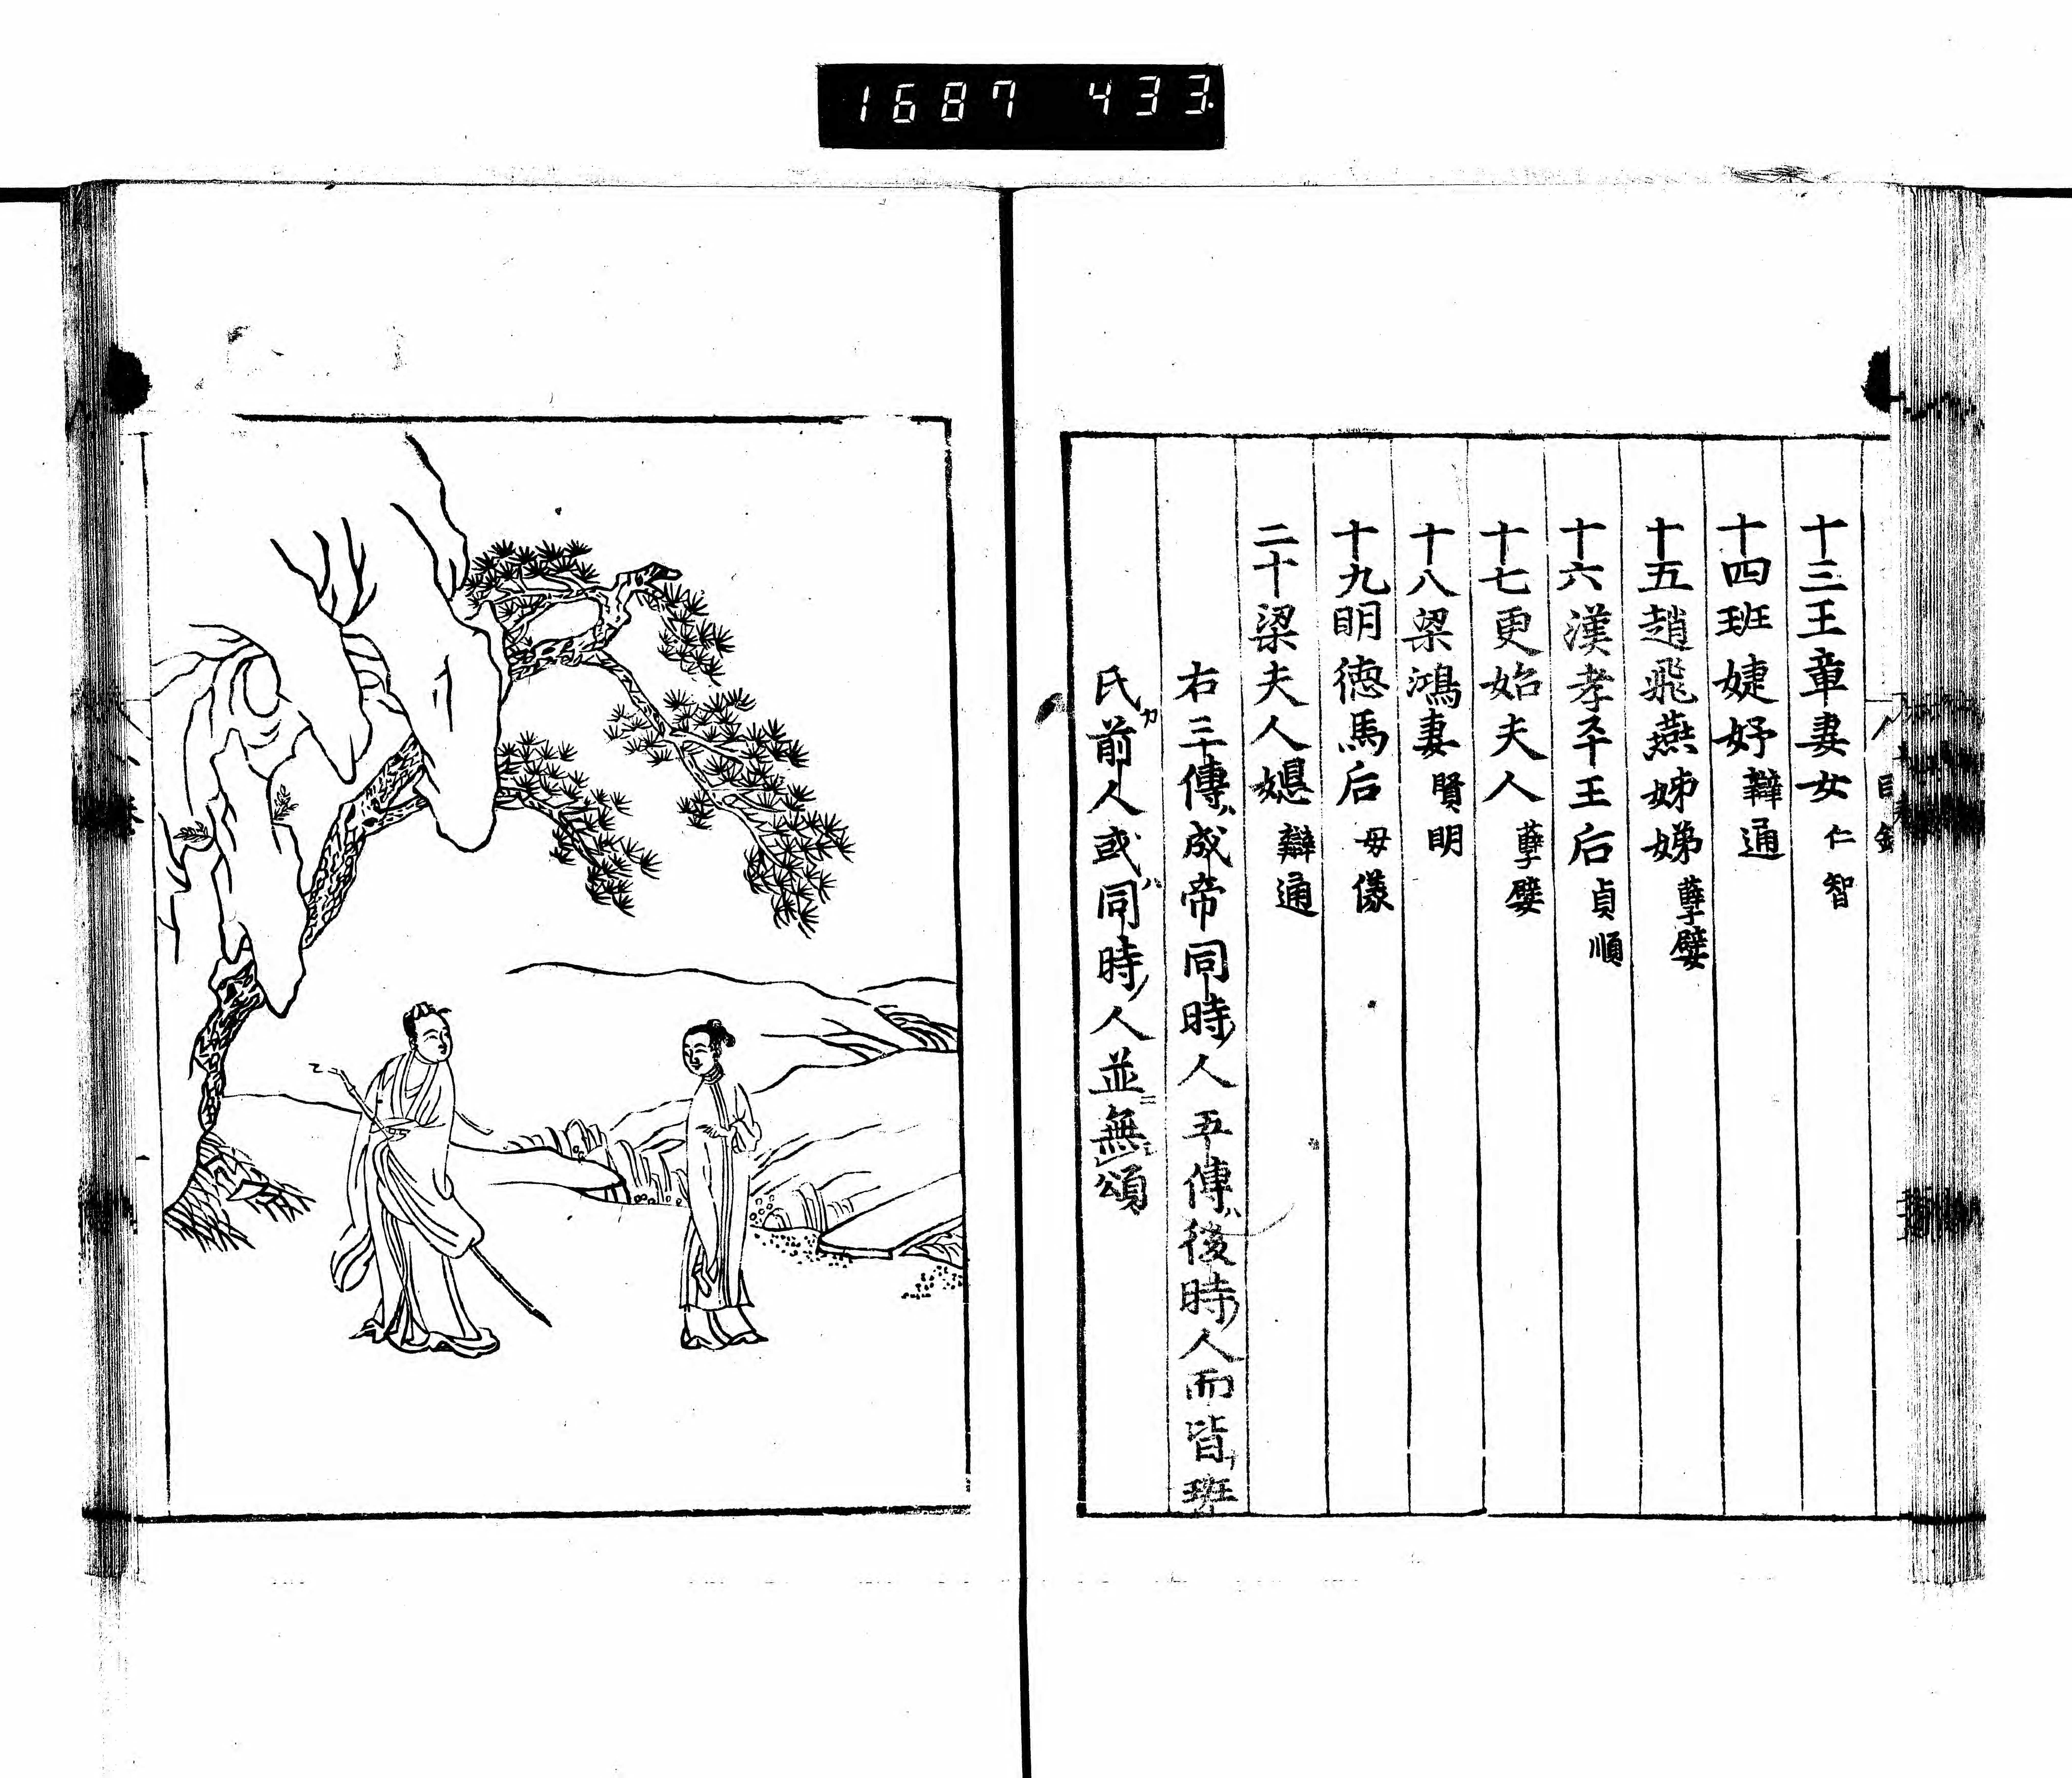 1687 433
目録
十三王章妻女 仁智
十四班婕妤 辯通
十五趙飛燕姊娣 孽嬖
十六漢孝平王后 貞順
十七更始夫人 孽嬖
十八梁鴻妻 賢明
十九明徳馬后 母儀
二十梁夫人嫕 辯通
右三傳ハ成帝同時ノ人五傳ハ後時ノ人而皆班
氏カ前人或ハ同時ノ人並ニ無頌